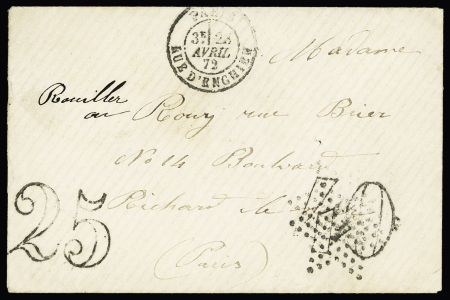 PARIS
3E 23
AVRIL
72
RUE D'ENGHIEN
Madame
Rouiller
au Roury rue Brier
No 14 Boulevard
Richard
25
40
(Paris)